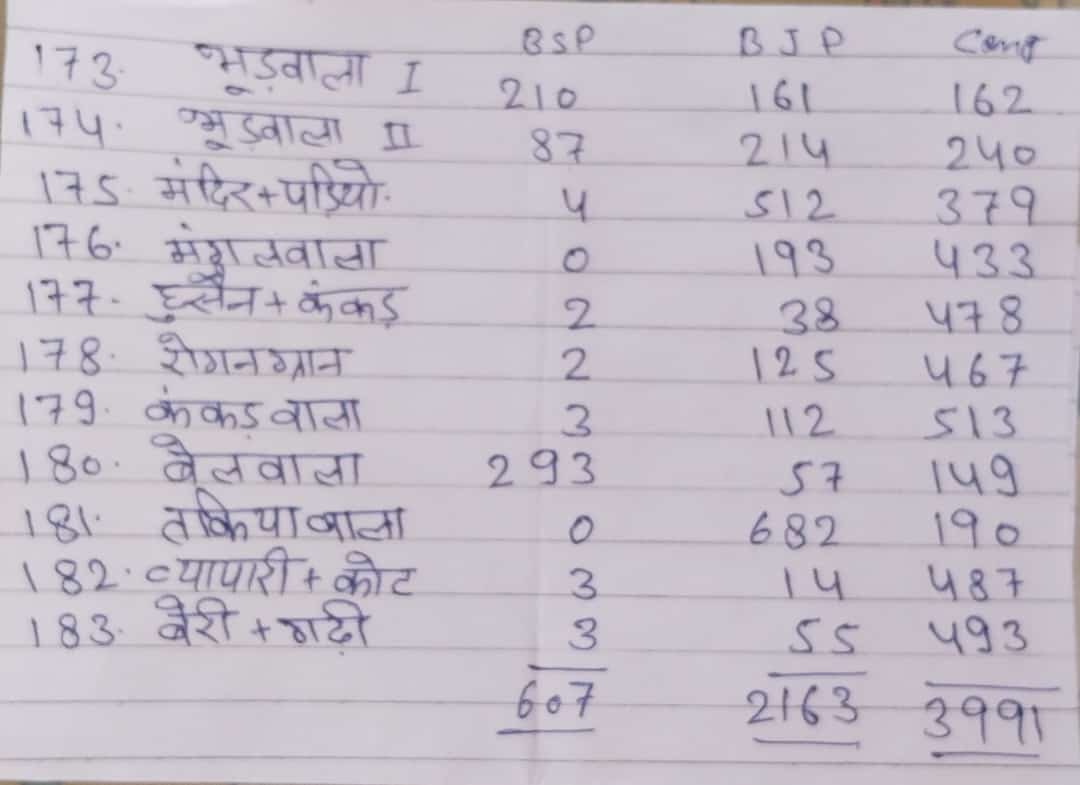 BSP BJP Cong
173. भूड़वाला I 210 161 162
174. भूडवाला II 87 214 240
175. मंदिर+पडियो. 4 512 379
176. मंगलवाला 0 193 433
177. हुसैन+कंकड़ 2 38 478
178. रोगनग्रान 2 125 467
179. कंकड़वाला 3 112 513
180. बेलवाला 293 57 149
181. तकियावाला 0 682 190
182. व्यापारी+कोट 3 14 487
183. बेरी+गढ़ी 3 55 493
607 2163 3991